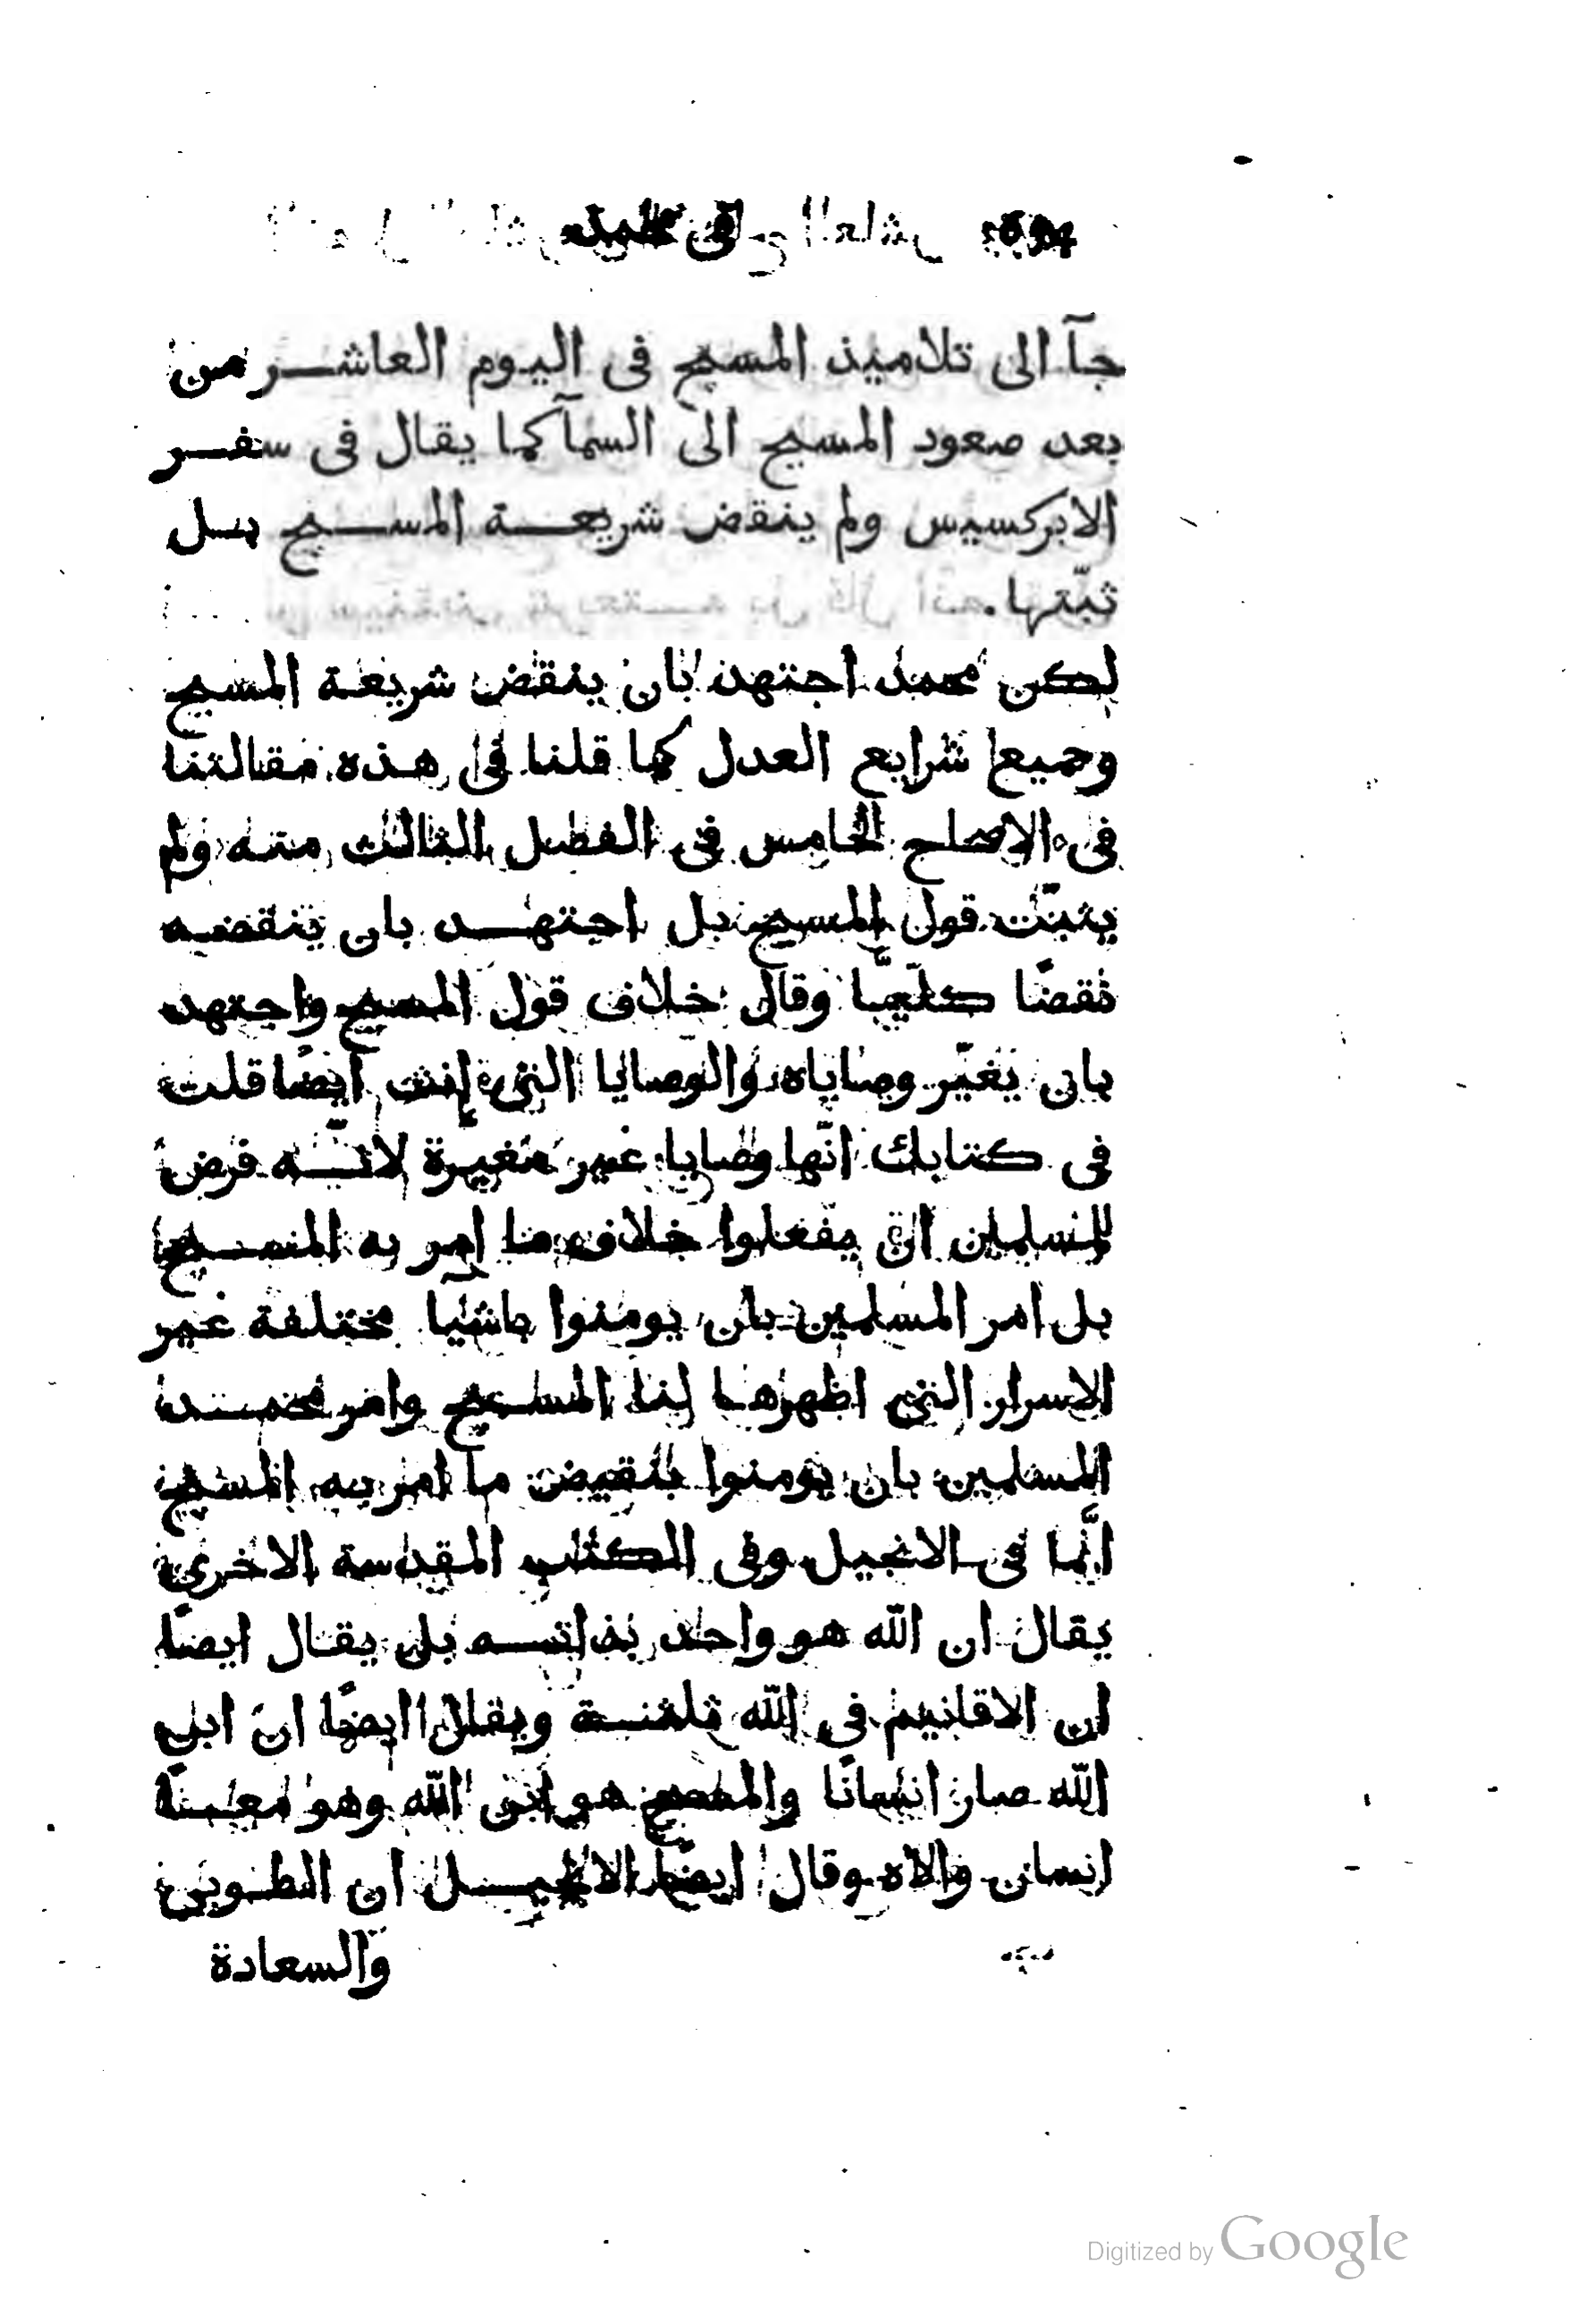 فى محمد
جآ الى تلاميذ المسيح فى اليوم العاشر من
بعد صعود المسيح الى السمآ كما يقال فى سفر
الابركسيس ولم ينقض شريعة المسيح بل
ثبّتها.
لكن محمد اجتهد بان ينقض شريعة المسيح
وجميع شرايع العدل كما قلنا فى هذه مقالتنا
فى الاصاح الخامس فى الفصل الثالث منه ولم
يثبّت قول المسيح بل اجتهد بان ينقضه
نقضًا كلّيًّا وقال خلاف قول المسيح واجتهد
بان يغيّر وصاياه والوصايا التى انت ايضًا قلت
فى كتابك انّها وصايا غير متغيرة لانّه فرض
للمسلمين ان يفعلوا خلاف ما امر به المسيح
بل امر المسلمين بان يومنوا باشيآ مختلفة غير
الاسرار التى اظهرها لنا المسيح وامر محمد
المسلمين بان يومنوا بنقيض ما امر به المسيح
انَّما فى الانجيل وفى الكتب المقدسة الاخرى
يقال ان اللّه هو واحد بذاته بل يقال ايضًا
ان الاقانيم فى اللّه ثلثة ويقال ايضًا ان ابن
اللّه صار انسانًا والمسيح هو ابن اللّه وهو معًا
انسان والاه وقال ايضًا الانجيل ان الطوبى
والسعادة
Digitized by Google